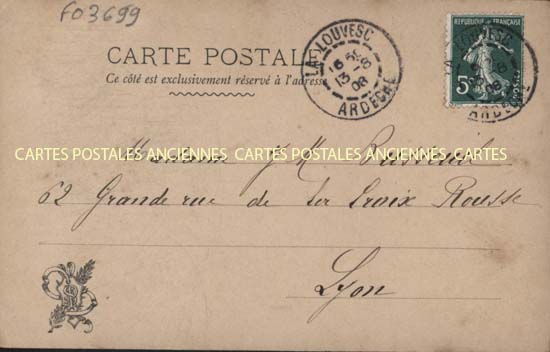 FO3699
CARTE POSTALE
Ce côté est exclusivement réservé à l'adresse
LA LOUVESC
13 -8
08
ARDECHE
REPUBLIQUE FRANÇAISE
5
POSTES
LOUVESC
08
ARDECHE
CARTES POSTALES ANCIENNES CARTES POSTALES ANCIENNES CARTES
62 Grande rue de la Croix Rousse
Lyon